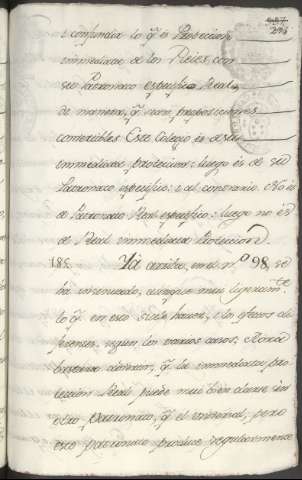 295
i confundir lo q.e es Proteccion
immediata de los Reies con
seu Patronato especifico Real
de manera, q.e sean proposiciones
convertibles Este Colegio és de su
immediata proteccion: luego és de su
Patronato especifico: i al contrario. No és
de Patronato Real especifico: luego no és
de Real immediata Proteccion.
185. Ya arriba, en el n.o 98, se
há insinuado, aunque mui ligeram.te
lo q.e en esto suele haver, i los efectos
segun los varios casos; Ahora
bastará advertir, q.e la immediata pro-
teccion Real puede mui bien darse sin
otro Patronato, q.e el universal, pero
este patronato produce regularmente